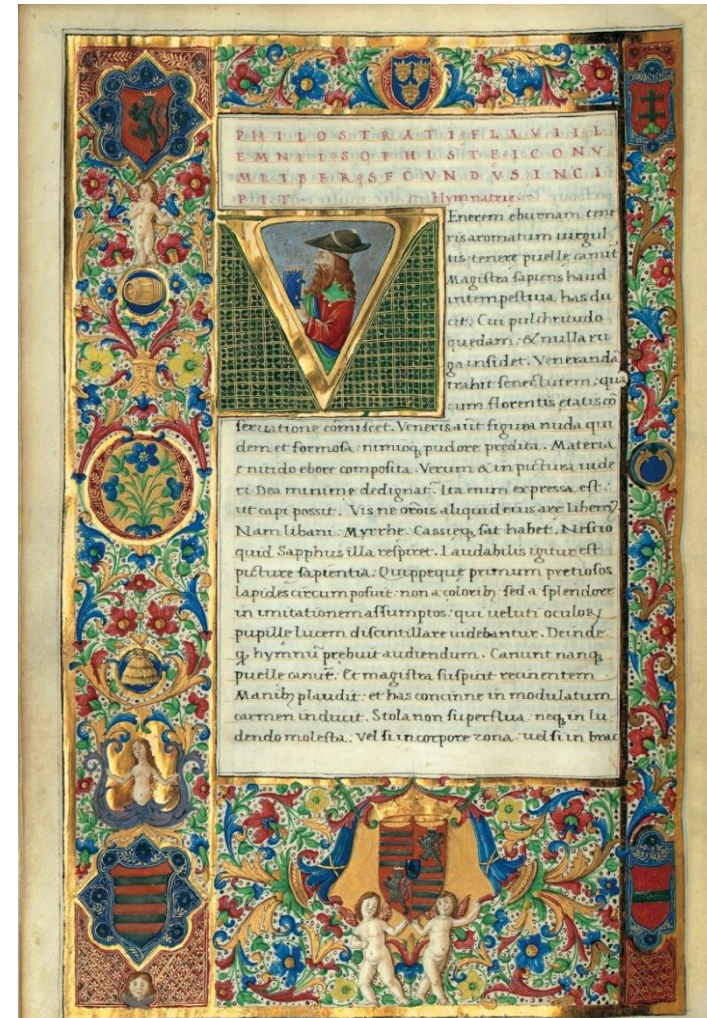 PHILOSTRATI FLAVII L
EMNII SOPHISTE ICONV
M LIBER SECVNDVS INCI
PIT. Hymnatrie.
VEnerem eburnam tene
ris aromatum uirgul
tis tenere puelle canut̄
Magistra sapiens haud
intempestiua has du
cit. Cui pulchritudo
quedam: & nulla ru
ga insidet. Veneranda
trahit senectutem: qua
cum florentis etatis cō
seruatione cōmiscet. Veneris aut̄ figura nuda qui
dem et formosa nimioq; pudore predita. Materia
e nitido ebore composita. Verum & in pictura uide
ri Dea minime dedignat~. Ita enim expressa est:
ut capi possit. Vis ne aliquid eius are
Nam libani: Myrrhe. Cassieq; sat habet. Nescio
quid Sapphus illa respiret. Laudabilis igitur est
picture sapientia. Quippeque primum pretiosos
lapides circumposuit: non a colorib; sed a splendore
in imitationem assumptos: qui ueluti oculoꝝ
pupille lucem discintillare uidebantur. Deinde
q; hymnū prebuit audiendum. Canunt nanq;
puelle canut̄. Et magistra suspicit recinentem
Manib; plaudit: et has concinne in modulatum
carmen inducit. Stola non superflua: neq; in lu
dendo molesta. Vel si in corpore zona: uel si in brac